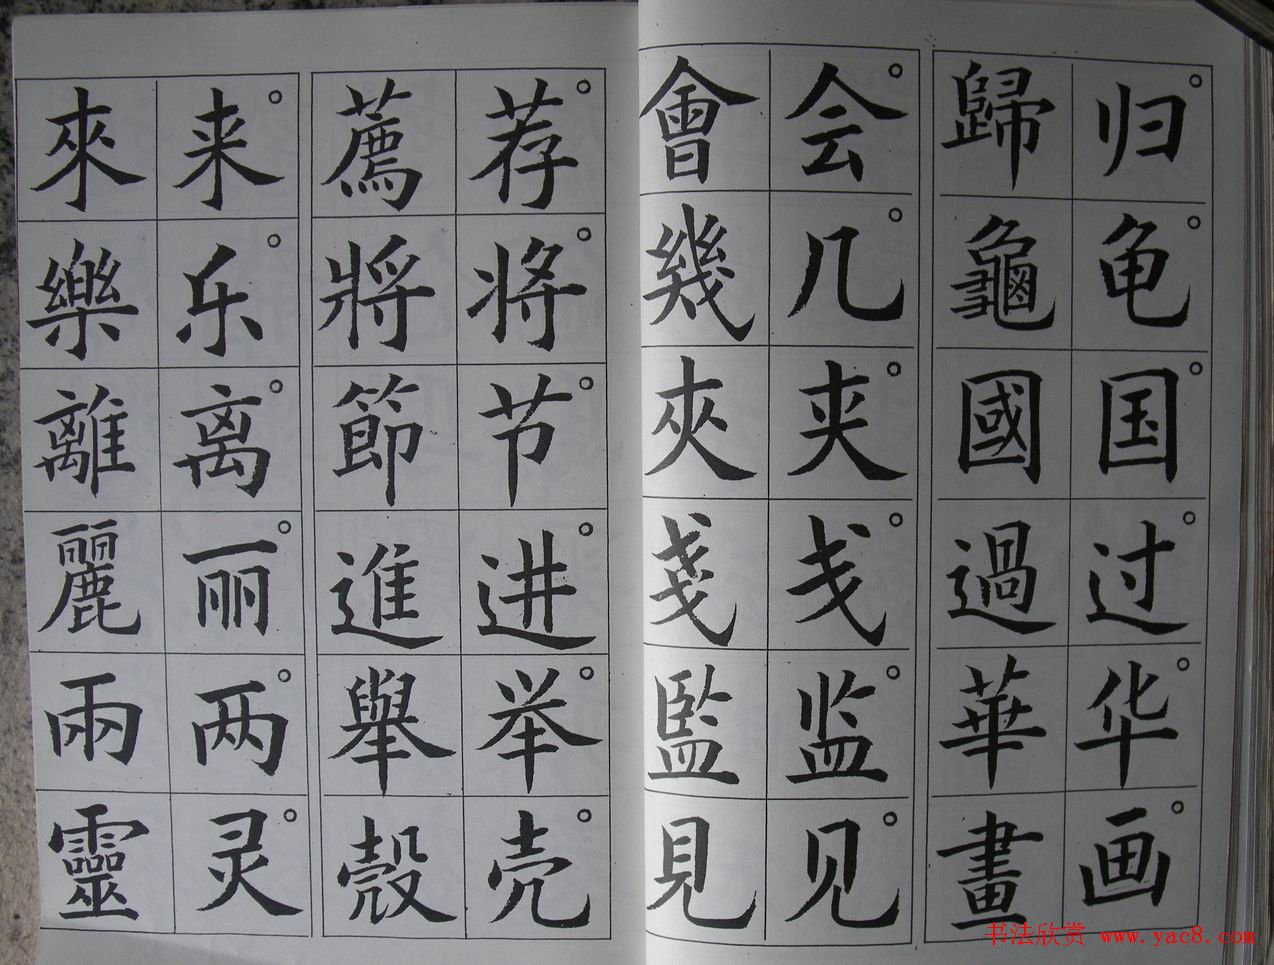 归歸
龟龜
国國
过過
华華
画畫
会會
几幾
夹夾
戋戔
监監
见見
荐薦
将將
节節
进進
举舉
壳殼
来來
乐樂
离離
丽麗
两兩
灵靈
书法欣赏 www.yac8.com